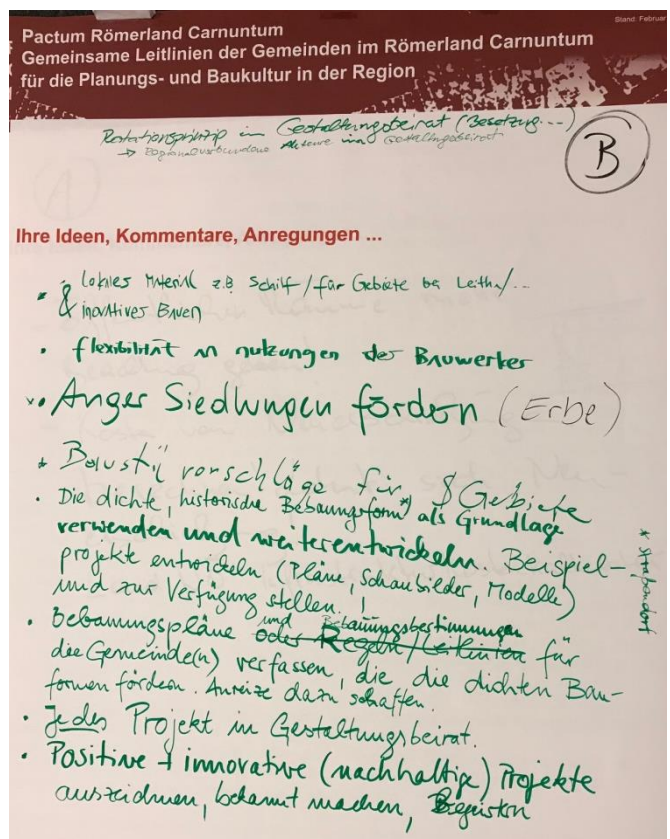 Stand: Februar
Pactum Römerland Carnuntum
Gemeinsame Leitlinien der Gemeinden im Römerland Carnuntum
für die Planungs- und Baukultur in der Region
Rotationsprinzip im Gestaltungsbeirat (Besetzung...)
→ Akteure im Gestaltungsbeirat
B
Ihre Ideen, Kommentare, Anregungen ...
• lokales Material z.B Schilf / für Gebiete bei Leitha/...
& inovatives Bauen
• flexibilität in nutzungen der Bauwerker
• Anger Siedlungen fördern (Erbe)
• Baustil vorschläge für § Gebiete
• Die dichte, historische Bebaungsform *) als Grundlage
verwenden und weiterentwickeln. Beispiel-
projekte entwickeln (Pläne, Schaubilder, Modelle)
und zur Verfügung stellen. !
* Straßendorf
• Bebauungspläne und Bebauungsbestimmungen
oder Regeln/Leitlinien für
die Gemeinde(n) verfassen, die die dichten Bau-
formen fördern. Anreize dazu schaffen.
• Jedes Projekt in Gestaltungsbeirat.
• Positive + innovative (nachhaltige) Projekte
auszeichnen, bekannt machen,